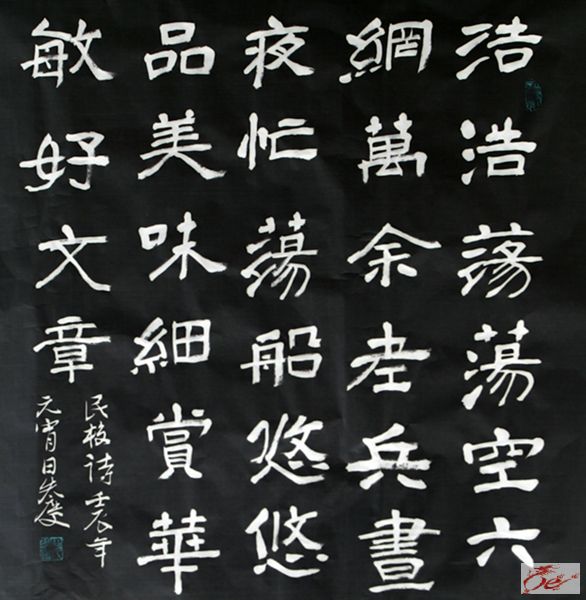 浩浩蕩蕩空六
網萬余老兵晝
夜忙蕩船悠悠
品美味細賞華
敏好文章
民枝诗壬辰年
元宵日